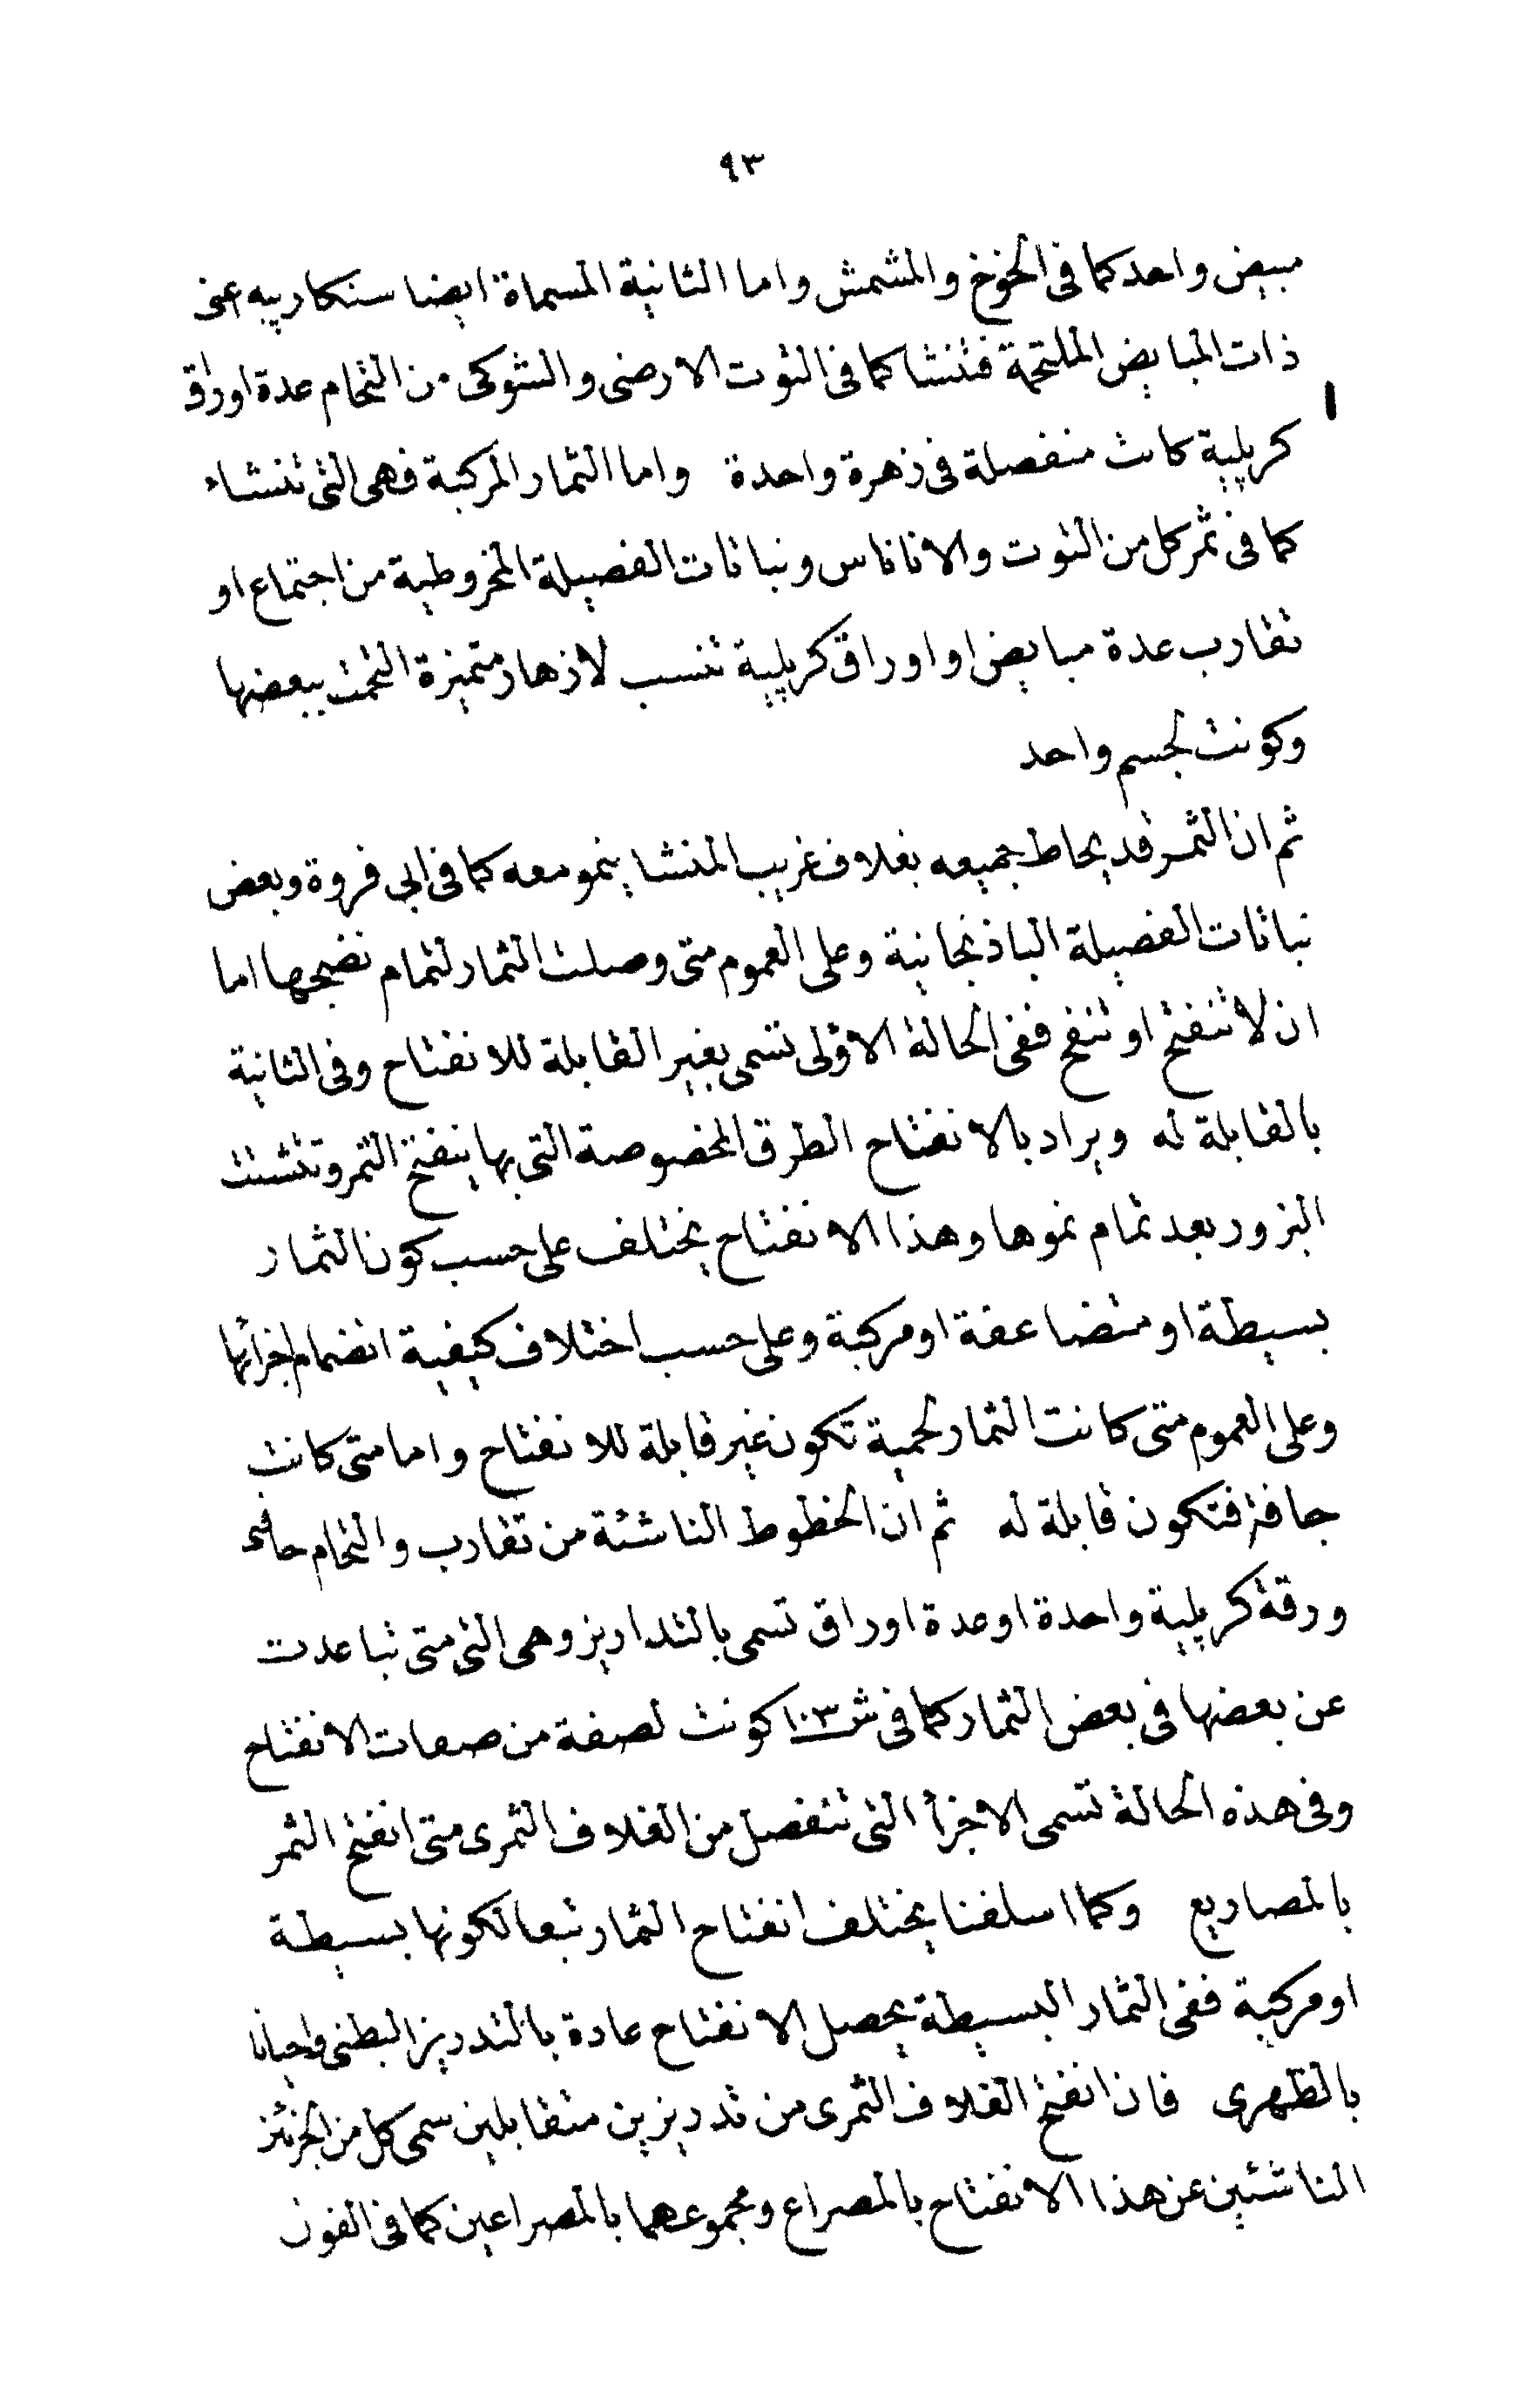 ٩٣
مبيض واحد كما فى الخوخ والمشمش واما الثانية المسماة ايضا سنكاربيه اعنى
ذات المبايض الملتحمة فتنشا كما فى التوت الارضى والشوكى من التحام عدة اوراق
كربلية كانت منفصلة فى زهرة واحدة واما الثمار المركبة فهى التى تنشاء
كما فى ثمر كل من التوت والاناناس ونباتات الفصيلة المخروطية من اجتماع او
تقارب عدة مبايض او اوراق كربلية تنسب لازهار متميزة التحمت ببعضها
وكونت لجسم واحد
ثم ان الثمر قد يحاط جميعه بغلاف غريب المنشا ينمو معه كما فى ابى فروة وبعض
نباتات الفصيلة الباذنجانية وعلى العموم متى وصلت الثمار لتمام نضجها اما
ان لا تنفتح او تنفتح ففى الحالة الاولى تسمى بغير القابلة للانفتاح وفى الثانية
بالقابلة له ويراد بالانفتاح الطرق المخصوصة التى بها ينفتح الثمر وتتشتت
البزور بعد تمام نموها وهذا الانفتاح يختلف على حسب كون الثمار
بسيطة او متضاعفة او مركبة وعلى حسب اختلاف كيفية انضمام اجزائها
وعلى العموم متى كانت الثمار لحمية تكون غير قابلة للانفتاح واما متى كانت
جافة فتكون قابلة له ثم ان الخطوط الناشئة من تقارب والتحام حافتى
ورقة كربلية واحدة او عدة اوراق تسمى بالتداريز وهى التى متى تباعدت
عن بعضها فى بعض الثمار كما فى ش ١٠٣ كونت لصفة من صفات الانفتاح
وفى هذه الحالة تسمى الاجزأ التى تنفصل من الغلاف الثمرى متى انفتح الثمر
بالمصاريع وكما اسلفنا يختلف انفتاح الثمار تبعا لكونها بسيطة
او مركبة ففى الثمار البسيطة يحصل الانفتاح عادة بالتدريز البطنى واحيانا
بالظهرى فان انفتح الغلاف الثمرى من تدريزين متقابلين سمى كل من الجزئين
الناشئين عن هذا الانفتاح بالمصراع ومجموعهما بالمصراعين كما فى الفول